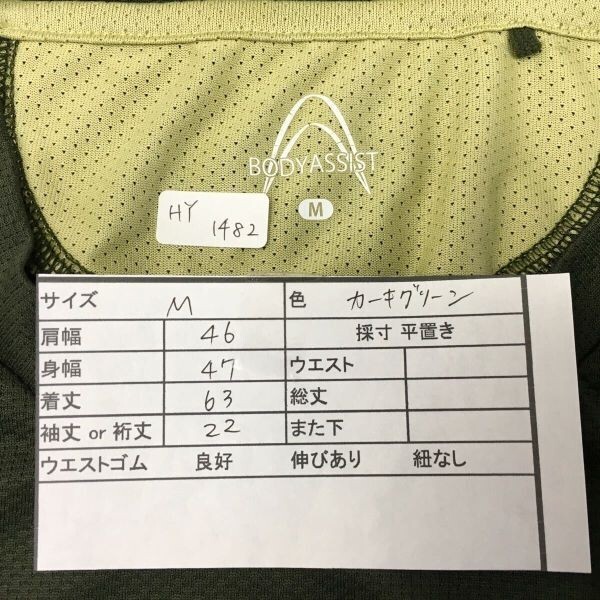 BODYASSIST
M
HY
1482
サイズ M 色 カーキグリーン
肩幅 46 採寸 平置き
身幅 47 ウエスト
着丈 63 総丈
袖丈 or 裄丈 22 また下
ウエストゴム 良好 伸びあり 紐なし